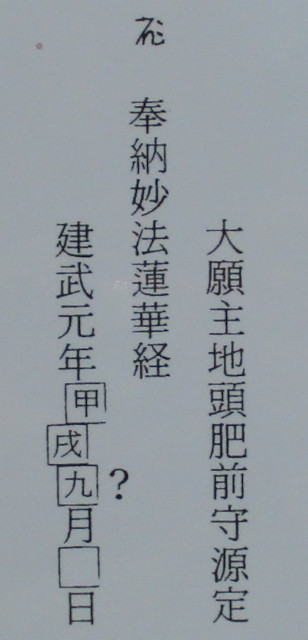 大願主地頭肥前守源定
奉納妙法蓮華経
建武元年甲戌九?月□日